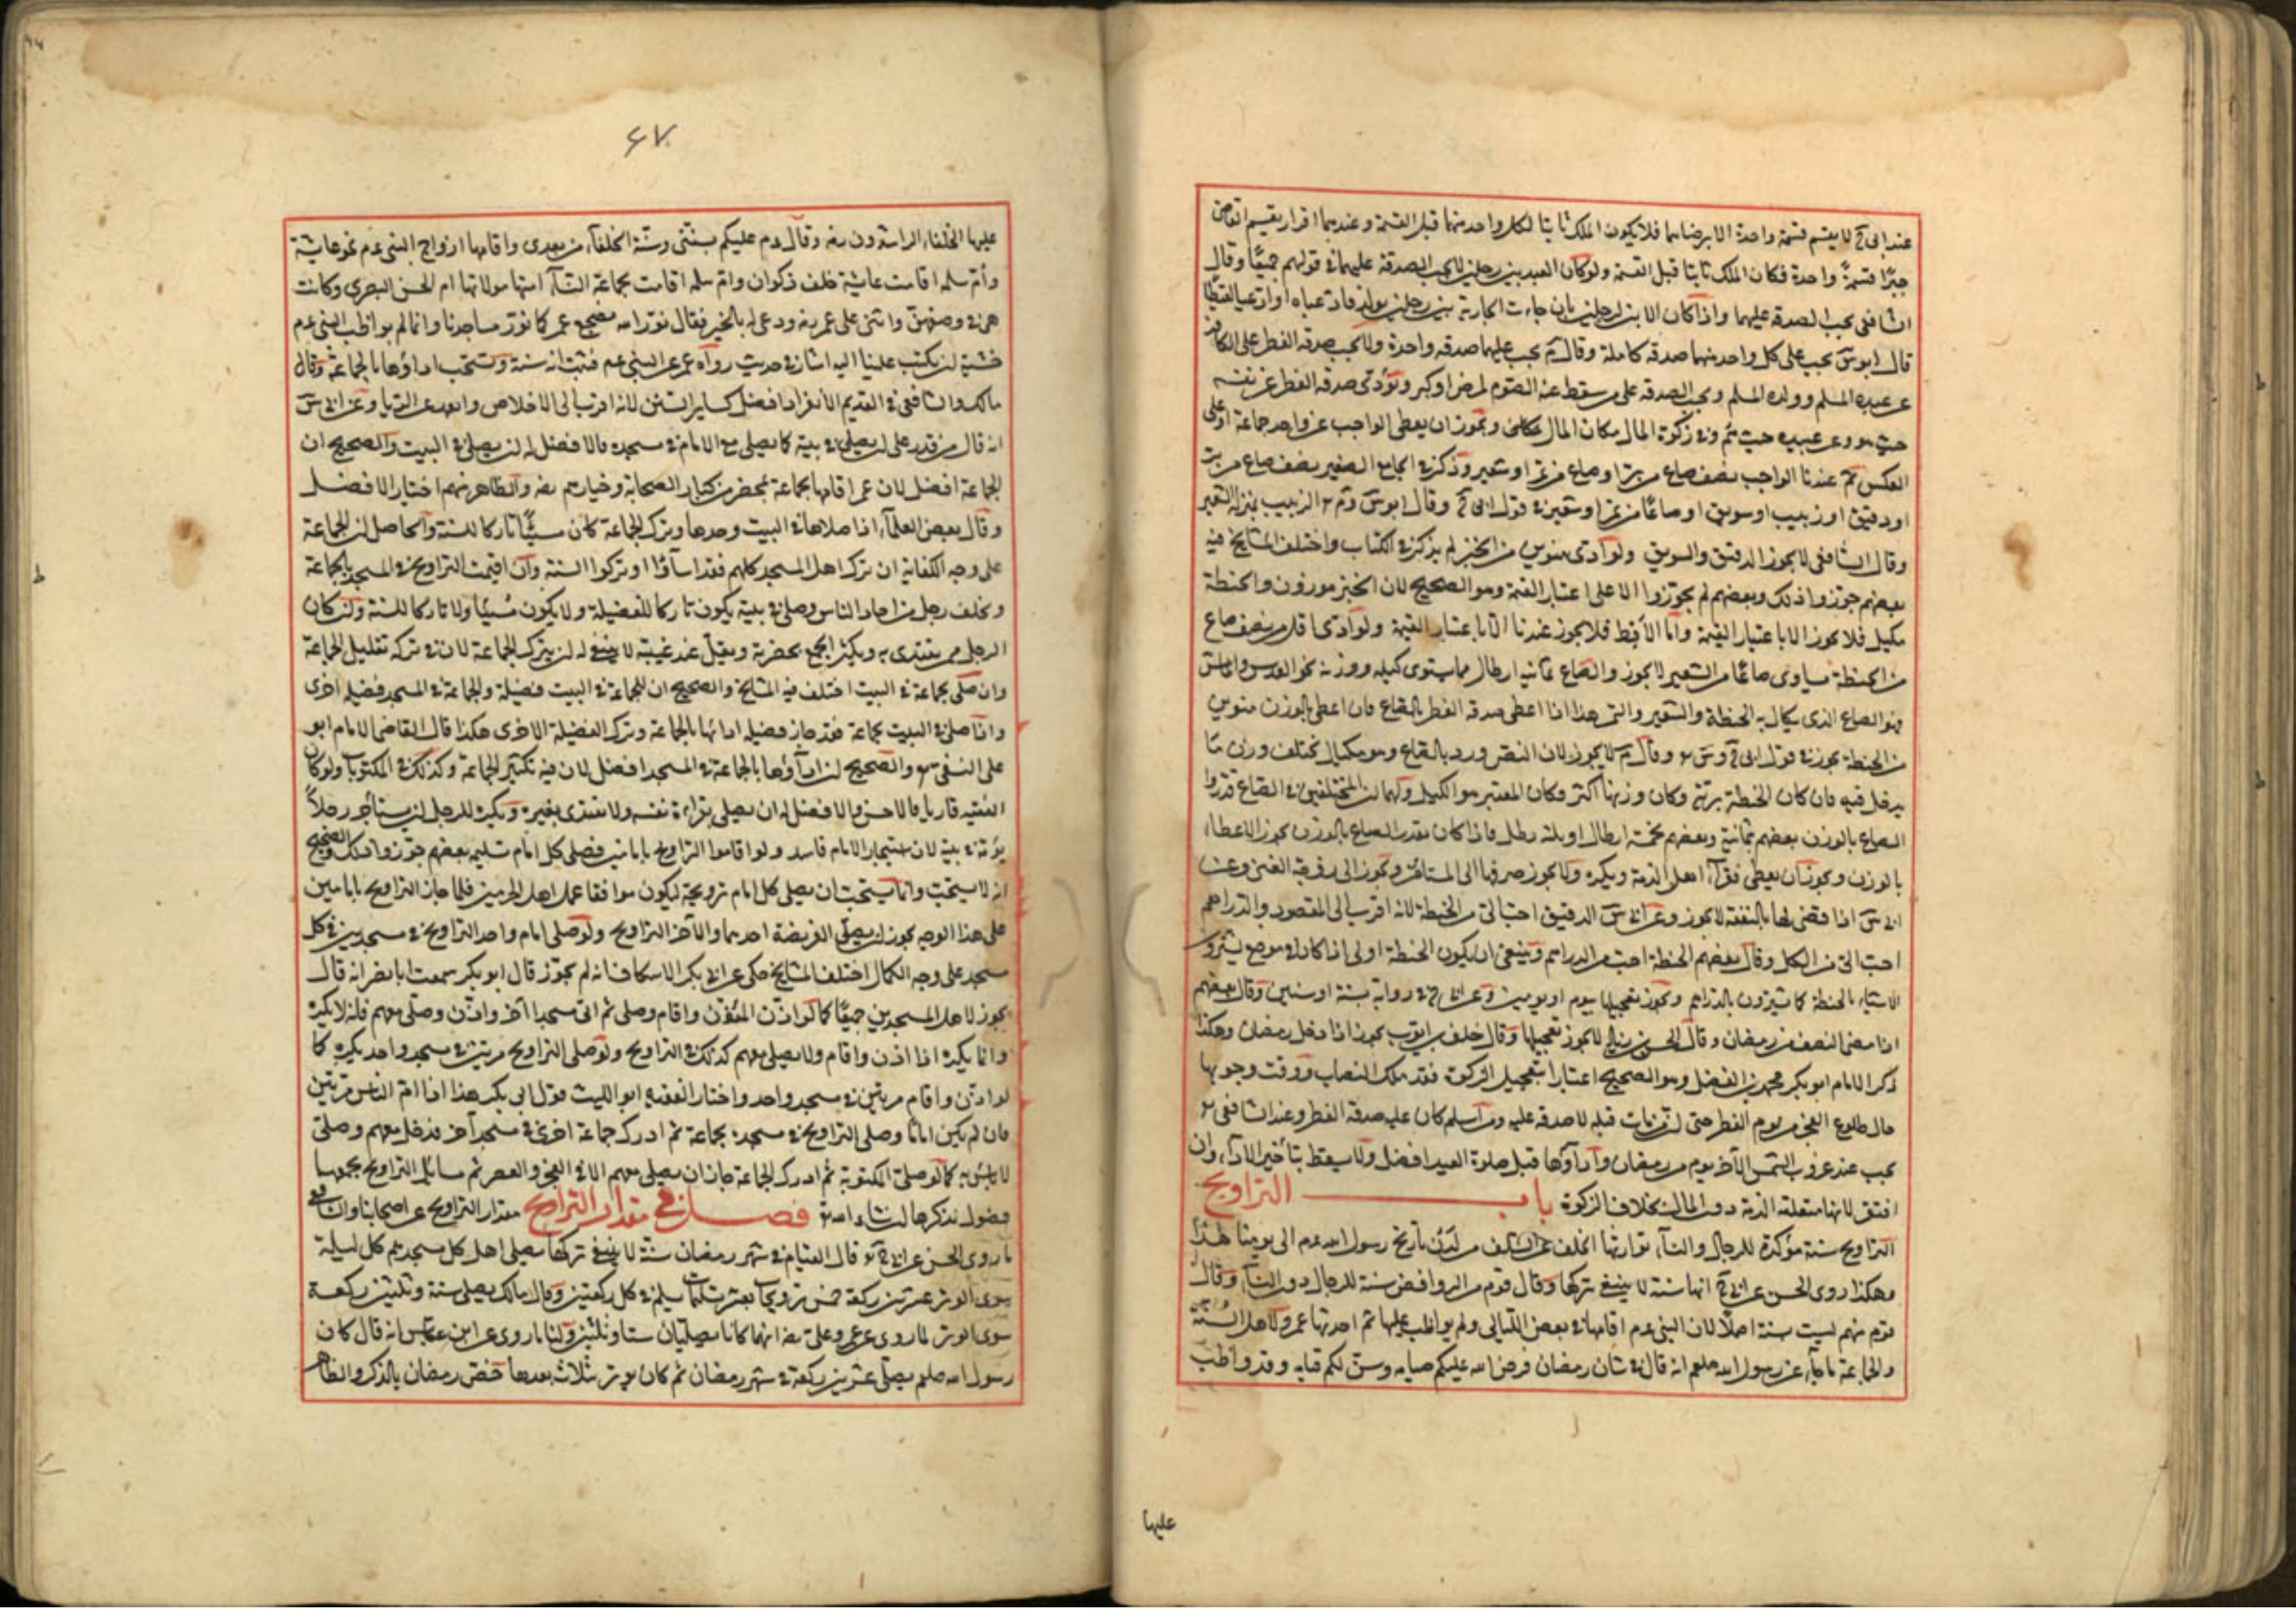 عند ابى ح لا يقسم قسمة واحدة الا برضاهما فلا يكون الملك ثابتا لكل واحد منهما قبل القسمة وعندهما اقرار يقسم
جبرًا قسمةً واحدة فكان الملك ثابتا قبل القسمة ولو كان العبد بين رجلين لا يجب الصدقة عليهما فى قولهم جميعًا وقال
الشافعى يجب الصدقة عليهما واذا كان الابن لرجلين بان جاءت الجارية بين رجلين بولد فادعياه او ادعيا لقيطا
قال ابو س يجب على كل واحد منهما صدقة كاملة وقال م يجب عليهما صدقة واحدة ولا يجب صدقة الفطر على الكافر
عن عبده المسلم وولده المسلم ويجب الصدقة على من سقط عنه الصوم لمرض او كبر وتؤدى صدقة الفطر عن نفسه
حيث هو وعن عبيده حيث هم وفى زكوة المال مكان المال ويجوز ان يعطى الواجب عن واحد جماعة او على
العكس ثم عندنا الواجب نصف صاع من بر او صاع من تمر او شعير وذكر فى الجامع الصغير نصف صاع من بر
او دقيق او زبيب او سويق او صاعًا من تمر او شعير فى قول ابى ح وقال ابو س وم الزبيب بمنزلة الشعير
وقال الشافعى لا يجوز الدقيق والسويق ولو ادى منوين من الخبز لم يذكر فى الكتاب واختلف المشايخ فيه
بعضهم جوزوا ذلك وبعضهم لم يجوزوا الا على اعتبار القيمة وهو الصحيح لان الخبز موزون والحنطة
مكيل فلا يجوز الا باعتبار القيمة واما الاقط فلا يجوز عندنا الا باعتبار القيمة ولو ادى اقل من نصف صاع
من الحنطة يساوى صاعًا من الشعير لا يجوز والصاع ثمانية ارطال مما يستوى كيله ووزنه نحو العدس والماش
فهو الصاع الذى يكال به الحنطة والشعير والتمر هذا اذا اعطى صدقة الفطر بالصاع فان اعطى بالوزن منوين
من الحنطة يجوز فى قول ابى ح وس وقال م لا يجوز لان النص ورد بالصاع وهو مكيال تختلف وزن ما
يدخل فيه فان كان الحنطة وكان وزنها اكثر وكان المعتبر هو الكيل ولهما ان المختلفين فى الصاع قدروا
الصاع بالوزن بعضهم ثمانية وبعضهم بخمسة ارطال او ثلث رطل فاذا كان مقدر الصاع بالوزن يجوز الاعطاء
بالوزن ويجوز ان يعطى فقراء اهل الذمة ويكره ولا يجوز صرفها الى المستأمن ويجوز الى رفيقه الغنى وعن
ابى س اذا قضى لها بالنفقة لا يجوز وعن ابى س الدقيق احب الى من الحنطة لانه اقرب الى المقصود والدراهم
احب الى من الكل وقال بعضهم الحنطة احب من الدراهم وينبغى ان يكون الحنطة اولى اذا كان فى موضع يشترون
الاشياء بالحنطة كما يشترون بالدراهم ويجوز تعجيلها بيوم او يومين وعن ابى ح فى رواية بسنة او سنين وقال بعضهم
اذا مضى النصف من رمضان وقال الحسن بن زياد لا يجوز تعجيلها وقال خلف بن ايوب يجوز اذا دخل رمضان وهكذا
ذكر الامام ابو بكر محمد بن الفضل وهو الصحيح اعتبارا بتعجيل الزكوة فقد ملك النصاب ووقت وجوبها
حال طلوع الفجر من يوم الفطر حتى ان من مات قبله لا صدقة عليه ومن اسلم كان عليه صدقة الفطر وعند الشافعى
يجب عند غروب الشمس الآخر يوم من رمضان واداؤها قبل صلوة العيد افضل ولا يسقط بتأخير الاداء وان
افتقر لانها متعلقة الذمة دون المال بخلاف الزكوة باب التراويح
التراويح سنة مؤكدة للرجال والنساء توارثها الخلف عن السلف من لدن تاريخ رسول الله عم الى يومنا هذا
وهكذا روى الحسن عن ابى ح انها سنة لا ينبغى تركها وقال قوم من الروافض سنة للرجال دون النساء وقال
قوم منهم ليست سنة اصلًا لان النبى عم اقامها فى بعض الليالى ولم يواظب عليها ثم احدثها عمر ولاهل السنة
والجماعة ما جاء عن رسول الله صلعم انه قال فى شان رمضان فرض الله عليكم صيامه وسن لكم قيامه وقد واظب
عليها
٤٧
عليها الخلفاء الراشدون رضه وقال عم عليكم بسنتى وسنة الخلفاء من بعدى واقامها ازواج النبى عم نحو عايشة
وام سلمة اقامت عايشة خلف ذكوان وام سلمة اقامت بجماعة النساء امتها مولاتها ام الحسن البصرى وكانت
واثنى على عمر رضه ودعى له بالخير فقال نور الله مضجع عمر كما نور مساجدنا وانما لم يواظب النبى عم
خشية ان يكتب علينا اليه اشار فى حديث رواه عمر عن النبى عم فثبت انه سنة ويستحب اداؤها بالجماعة وقال
مالك والشافعى فى القديم الانفراد افضل كساير السنن لانه اقرب الى الاخلاص وابعد عن الريا وعن ابى س
انه قال من قدر على ان يصلى فى بيته كما يصلى مع الامام فى مسجده فالافضل له ان يصلى فى البيت والصحيح ان
الجماعة افضل لان عمر اقامها بجماعة بمحضر من كبار الصحابة وخيارهم رضه والظاهر منهم اختيار الافضل
وقال بعض العلماء اذا صلاها فى البيت وحدها وترك الجماعة كان مسيئًا تاركا للسنة والحاصل ان الجماعة
على وجه الكفاية ان ترك اهل المسجد كلهم فقد اساؤا وتركوا السنة وان اقيمت التراويح فى المسجد بالجماعة
وتخلف رجل من احاد الناس وصلى فى بيته يكون تاركا للفضيلة ولا يكون مسيئا ولا تاركا للسنة وان كان
الرجل ممن يقتدى به ويكثر الجمع بحضرته ويقل عند غيبته لا ينبغى له ان يترك الجماعة لان فى تركه تقليل الجماعة
وان صلى بجماعة فى البيت اختلف فيه المشايخ والصحيح ان للجماعة فى البيت فضيلة وللجماعة فى المسجد فضيلة اخرى
واذا صلى فى البيت بجماعة فقد حاز فضيلة ادائها بالجماعة وترك الفضيلة الاخرى هكذا قال القاضى الامام ابو
على النسفى والصحيح ان اداؤها بالجماعة فى المسجد افضل لان فيه تكثير الجماعة وكذلك فى المكتوبات ولو كان
الفقيه قاريا فالاحسن والافضل له ان يصلى بقراءة نفسه ولا يقتدى بغيره ويكره للرجل ان يستأجر رجلًا
يؤمه فى بيته لان استيجار الامام فاسد ولو اقاموا التراويح بامامين فصلى كل امام تسليمة بعضهم جوزوا ذلك والصحيح
انه لا يستحب وانما يستحب ان يصلى كل امام ترويحة ليكون موافقا عمل اهل الحرمين فلما جاز التراويح بامامين
على هذا الوجه يجوز ان يصلى الفريضة احدهما والآخر التراويح ولو صلى امام واحد التراويح فى مسجدين فى كل
مسجد على وجه الكمال اختلف المشايخ حكى عن ابى بكر الاسكاف انه لم يجوز قال ابو بكر سمعت ابا نصر انه قال
يجوز لاهل المسجدين جميعًا كما لو اذن المؤذن واقام وصلى ثم اتى مسجدا آخر واذن وصلى معهم فانه لا يكره
وانما يكره اذا اذن واقام ولا يصلى معهم كذلك فى التراويح ولو صلى التراويح مرتين فى مسجد واحد يكره كما
لو اذن واقام مرتين فى مسجد واحد واختار الفقيه ابو الليث قول ابى بكر هذا اذا ام الناس مرتين
فان لم يكن اماما وصلى التراويح فى مسجده بجماعة ثم ادرك جماعة اخرى فى مسجد آخر فدخل معهم وصلى
لا بأس به كما لو صلى المكتوبة ثم ادرك الجماعة جاز ان يصلى معهم الا فى الفجر والعصر ثم مسائل التراويح يجمعها
فصول نذكرها ان شاء الله تع فصل فى مقدار التراويح مقدار التراويح عن اصحابنا والشافعى
ما روى الحسن عن ابى ح قال القيام فى شهر رمضان سنة لا ينبغى تركها يصلى اهل كل مسجد فى مسجدهم كل ليلة
سوى الوتر عشرين ركعة خمس ترويحات بعشر تسليمات يسلم فى كل ركعتين وقال مالك يصلى ستة وثلثين ركعة
سوى الوتر لما روى عن عمر وعلى رضه انهما كانا يصليان ستا وثلثين ولنا ما روى عن ابن عباس انه قال كان
رسول الله صلعم يصلى عشرين ركعة فى شهر رمضان ثم كان يوتر بثلاث بعدها خص رمضان بالذكر والظاهر